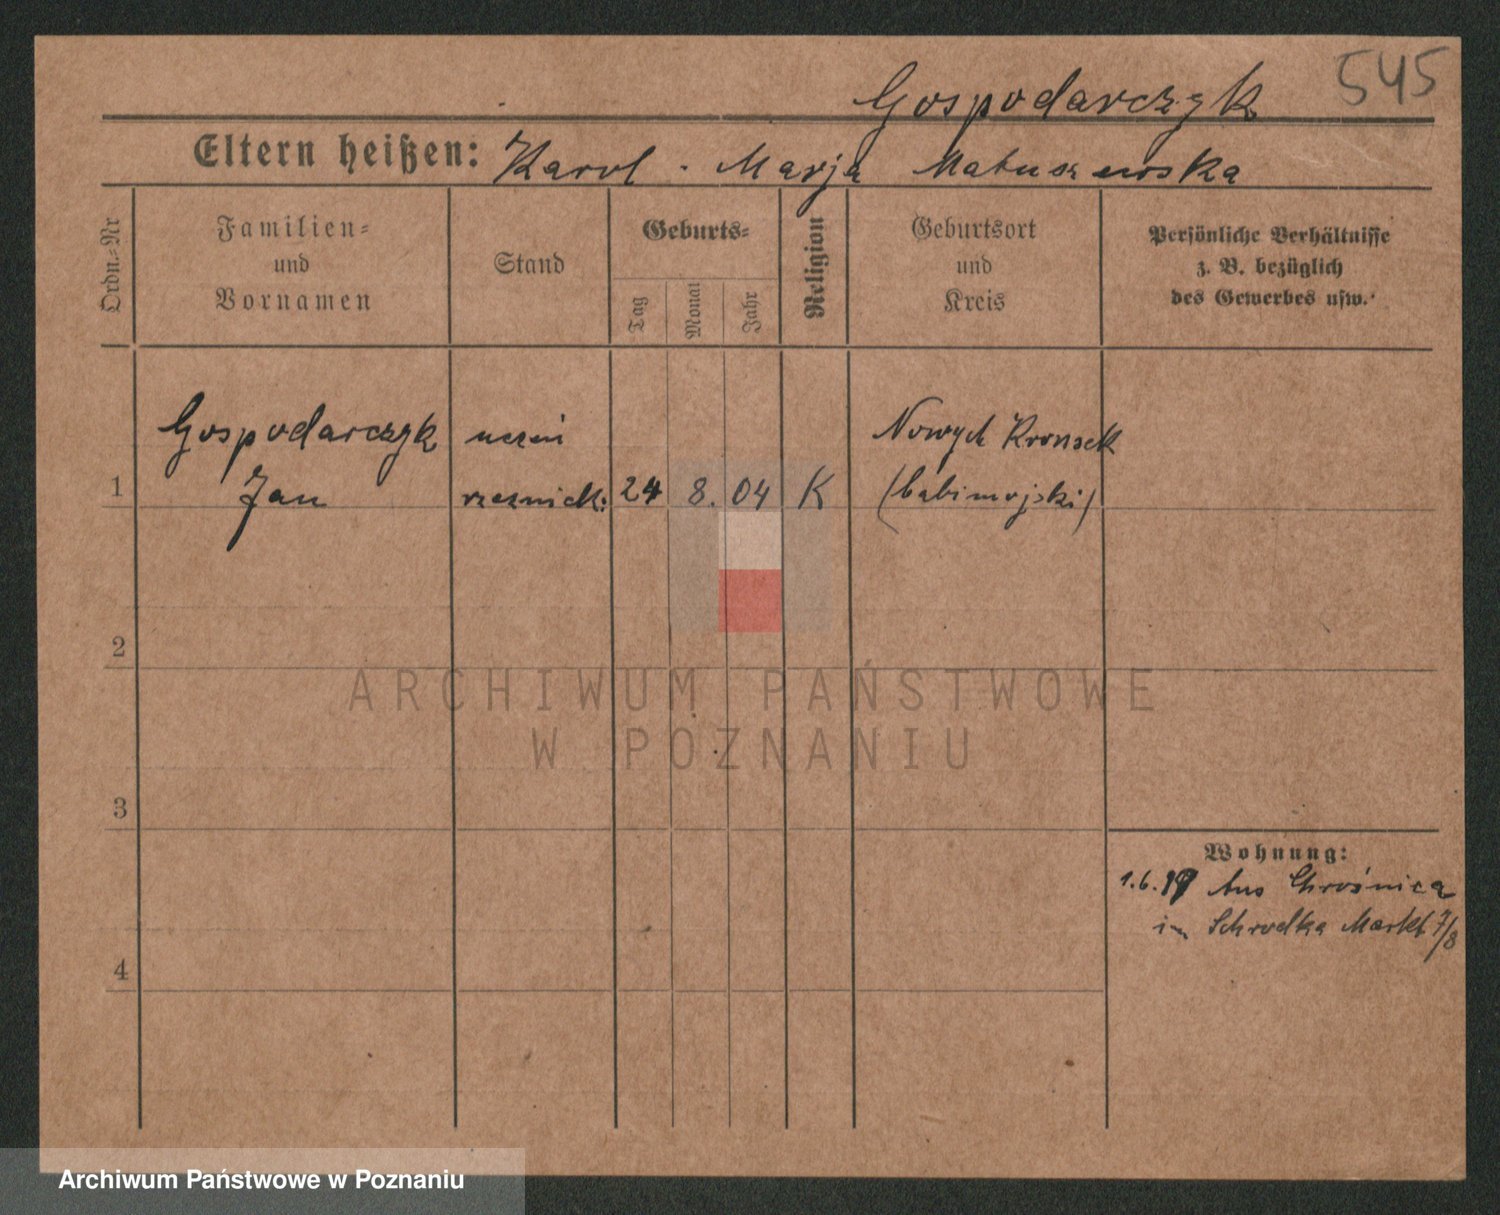 545
Gospodarczyk
Eltern heißen: Karol - Marja Matuszewska
Ordn.-Nr
Familien-
und
Vornamen
Stand
Geburts-
Tag
Monat
Jahr
Religion
Geburtsort
und
Kreis
Persönliche Verhältnisse
z. B. bezüglich
des Gewerbes usw.
Gospodarczyk uczeń Nowych Kromsck
1 Jan rzeznick: 24 8. 04 K (babimojski)
2
ARCHIWUM PAŃSTWOWE
W POZNANIU
3
Wohnung:
1.6.19 Aus Chrośnica
in Schrodka Markt 7/8
4
Archiwum Państwowe w Poznaniu